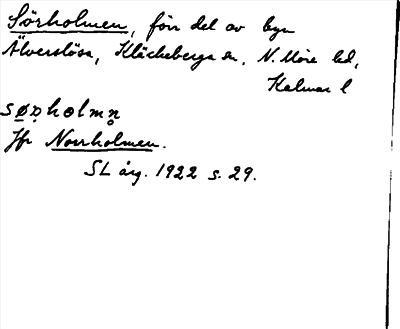 Sörholmen, förr del av byn
Älverslösa, Kläckeberga sn, N. Möre hd,
Kalmar l
søṇhɵlmn̥
Jfr Norrholmen.
SL årg. 1922 s. 29.